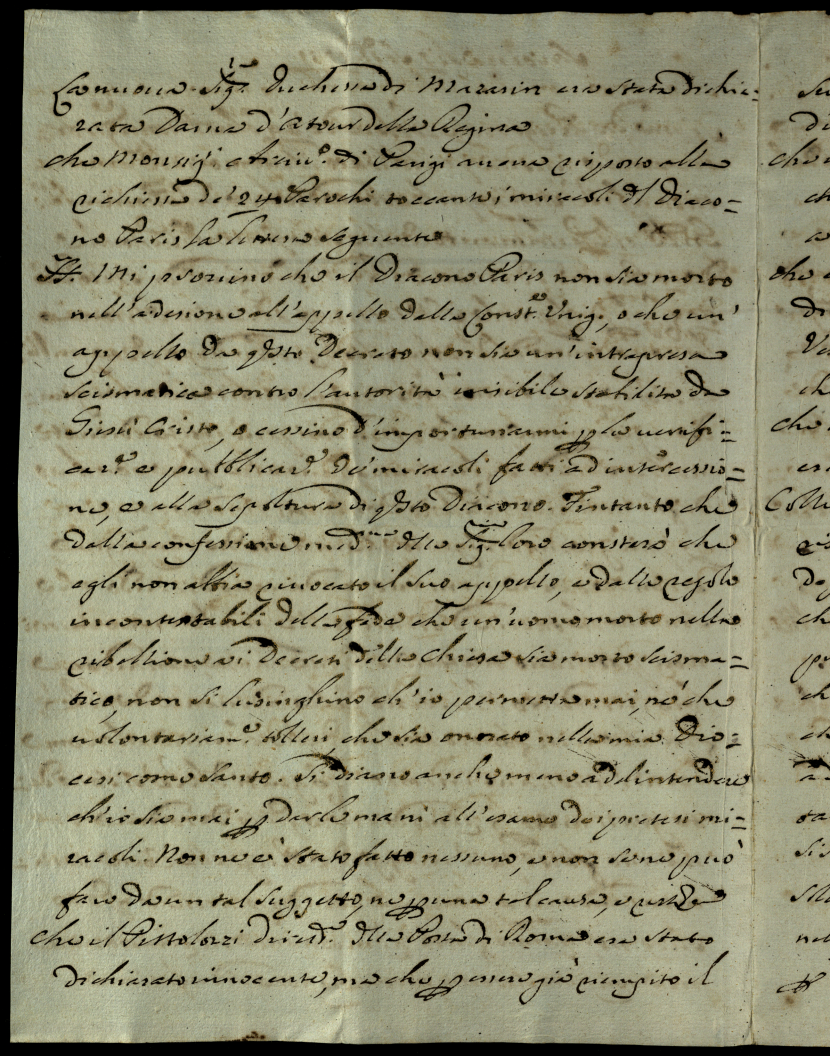 La nuova Sig.ra Duchessa di Mazarin era stata dichia-
rata Dama d'atour della Regina
che Monsig.r Arciv.o di Parigi aveva risposto alla
richiesta de' 24 Parochi toccante i miracoli d'l Diaco=
no Paris la lettera seguente
Mi provino che il Diacono Paris non sia morto
nell'adesione all'appello della Const.e Unig., o che un'
appello da q'sto Decreto non sia un'intrapresa
scismatica contro l'autorità visibile stabilita da
Giesù Cristo, o cessino d'importunarmi p la verifi=
car.e e pubblicar.e de' miracoli fatti ad intercessio=
ne, e alla sepoltura di q'sto Diacono. Fintanto che
dalla confessione med.ma d'lle Sig.rie Loro consterà che
egli non abbia rivocato il suo appello, e dalle regole
incontestabili della fede che un'uomo morto nella
ribellione ai Decreti della Chiesa sia morto scisma=
tico, non si lusinghino ch'io permetta mai, nè che
volontariam.e tolleri, che sia onorato nella mia Dio=
cesi come Santo. Si diano anche meno ad intendere
ch'io sia mai p dar le mani all'esame dei pretesi mi=
racoli. Non ne è stato fatto nessuno, e non se ne può
fare da un tal suggetto, ne p una tal causa, e
che il Pistolozzi d'lla Posta di Roma era stato
dichiarato innocente, ma che p essere già riempito il